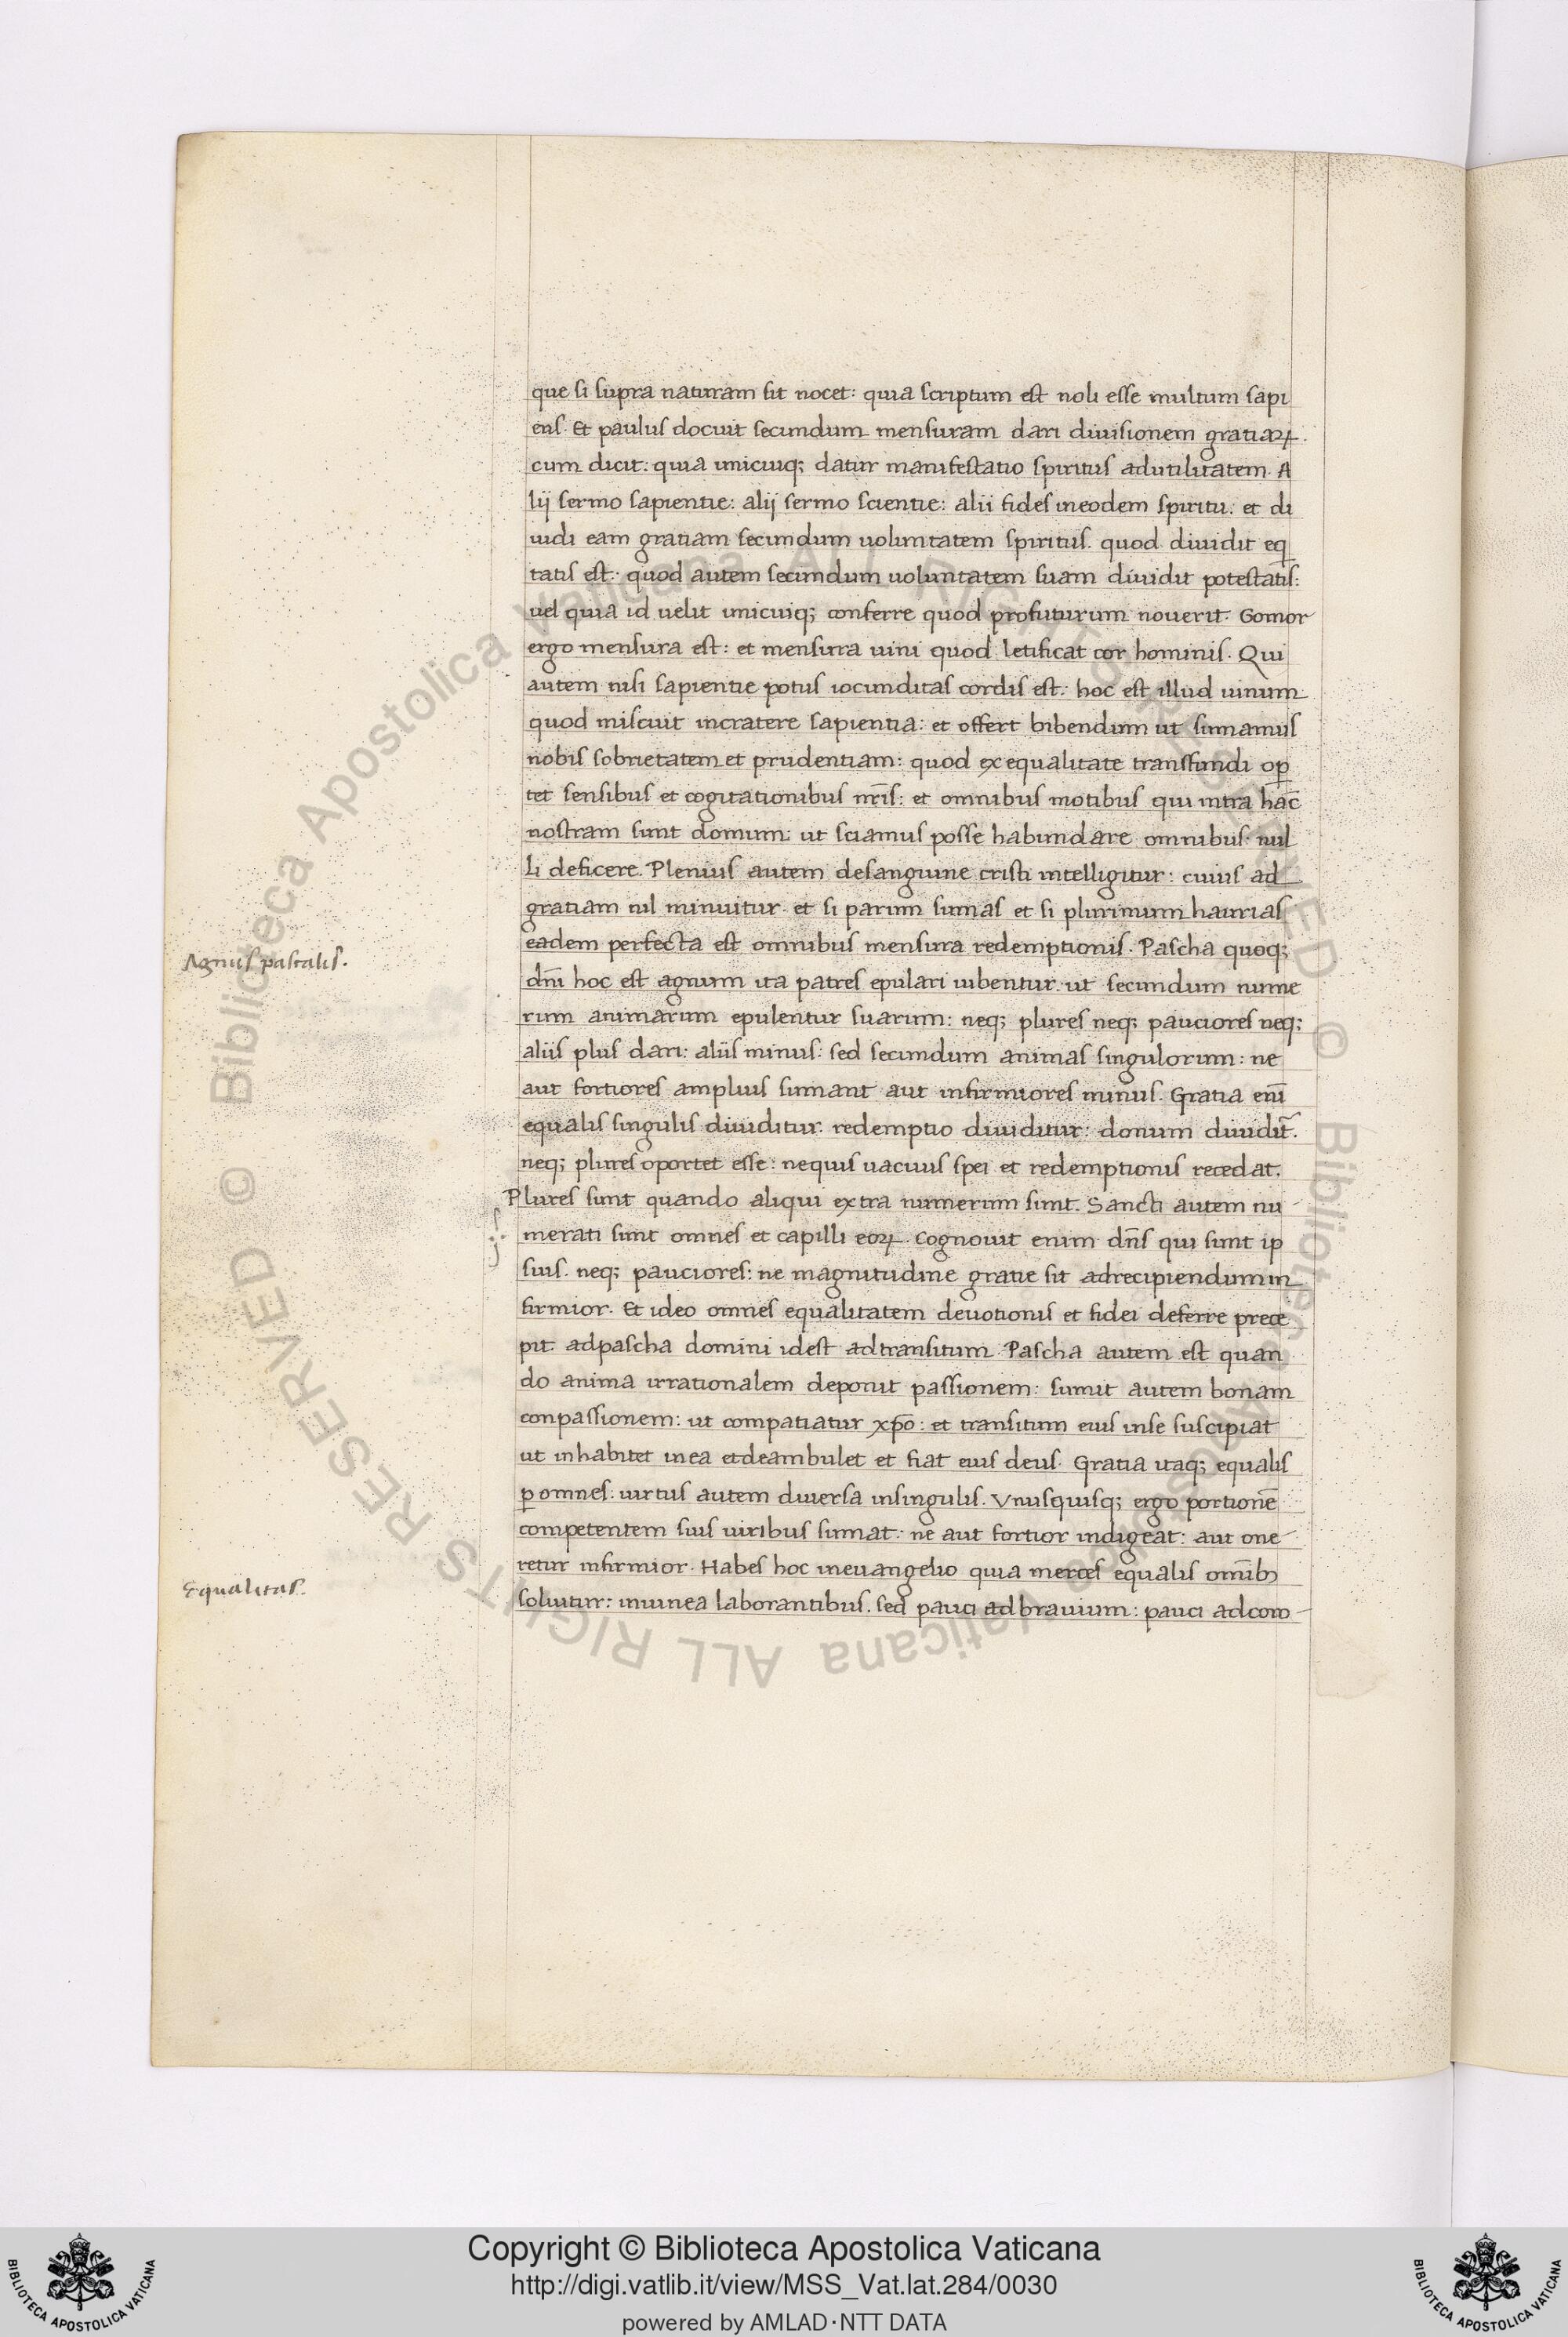 que si supra naturam sit nocet: quia scriptum est noli esse multum sapi
ens. Et paulus docuit secundum mensuram dari diuisionem gratiaꝝ.
cum dicit: quia unicuiq; datur manifestatio spiritus adutilitatem. A
lij sermo sapientie: alij sermo scientie: alii fides ineodem spiritu. et di
uidi eam gratiam secundum uoluntatem spiritus. quod diuidit eq
tatis est: quod autem secundum uoluntatem suam diuidit potestatis:
uel quia id uelit unicuiq; conferre quod profuturum nouerit. Gomor
ergo mensura est: et mensura uini quod letificat cor hominis. Qui
autem nisi sapientie potus iocunditas cordis est: hoc est illud uinum
quod miscuit incratere sapientia: et offert bibendum ut sumamus
nobis sobrietatem et prudentiam: quod ex equalitate transfundi op̄
tet sensibus et cogitationibus nr̄is: et omnibus motibus qui intra hac̄
nostram sunt domum: ut sciamus posse habundare omnibus. nul
li deficere. Plenius autem desanguine cristi intelligitur: cuius ad
gratiam nil minuitur. et si parum sumas et si plurimum haurias
eadem perfecta est omnibus mensura redemptionis. Pascha quoq;
Agnus pascalis.
dn̄i hoc est agnum ita patres epulari iubentur. ut secundum nume
rum animarum epulentur suarum: neq; plures neq; pauciores neq;
aliis plus dari: aliis minus: sed secundum animas singulorum: ne
aut fortiores amplius sumant aut infirmiores minus. Gratia eni̅
equalis singulis diuiditur. redemptio diuiditur: donum diuidit̄.
neq; plures oportet esse: nequis uacuus spei et redemptionis recedat.
Plures sunt quando aliqui extra numerum sunt. Sancti autem nu
merati sunt omnes et capilli eoꝝ. Cognouit enim dn̄s qui sunt ip
sius. neq; pauciores: ne magnitudine gratie sit adrecipiendum in
firmior. Et ideo omnes equalitatem deuotionis et fidei deferre prece
pit. adpascha domini idest adtransitum. Pascha autem est quan
do anima irrationalem deponit passionem: sumit autem bonam
conpassionem: ut compatiatur xp̄o: et transitum eius inse suscipiat
ut inhabitet in ea etdeambulet et fiat eius deus. Gratia itaq; equalis
ꝑ omnes: uirtus autem diuersa insingulis. Vnusquisq; ergo portionē
competentem suis uiribus sumat: ne aut fortior indigeat: aut one
retur infirmior. Habes hoc ineuangelio quia merces equalis omīb;
Equalitas.
soluitur: inuinea laborantibus. sed pauci ad brauium: pauci adcoro
Copyright © Biblioteca Apostolica Vaticana
http://digi.vatlib.it/view/MSS_Vat.lat.284/0030
powered by AMLAD·NTT DATA
BIBLIOTECA APOSTOLICA VATICANA
BIBLIOTECA APOSTOLICA VATICANA
© Biblioteca Apostolica Vaticana ALL RIGHTS RESERVED © Biblioteca Apostolica Vaticana ALL RIGHTS RESERVED